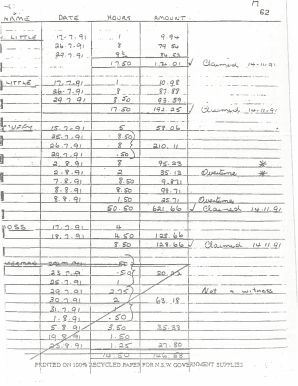 62
NAME DATE HOURS AMOUNT
LITTLE 17.7.91 1 9.94
26.7.91 8 79.54
29.7.91
17.50 Claimed 14.11.91
LITTLE 17.7.91 1 10.98
26.7.91 8 87.88
29.7.91 8.50 93.39
17.50 192.25 Claimed 14.11.91
15.7.91 5 58.06
25.7.91 8.50
26.7.91 8 210.11
29.7.91 .50
2.8.91 8 95.23 *
2.8.91 2 35.13 Overtime *
7.8.91 8.50
8.8.91 8.50 98.71
8.8.91 1.50 25.71 Overtime
50.50 621.66 Claimed 14.11.91
17.7.91 4
18.7.91 4.50 128.66
8.50 128.66 Claimed 14.11.91
.50
23.7.91 .50
25.7.91 1
29.7.91 2.75 Not a witness
30.7.91 2 63.18
31.7.91 1
1.8.91 .50
5.8.91 3.50 35.33
19.8.91 1.50
23.8.91 1.25 27.80
14.50
PRINTED ON 100% RECYCLED PAPER FOR N.S.W. GOVERNMENT SUPPLIES